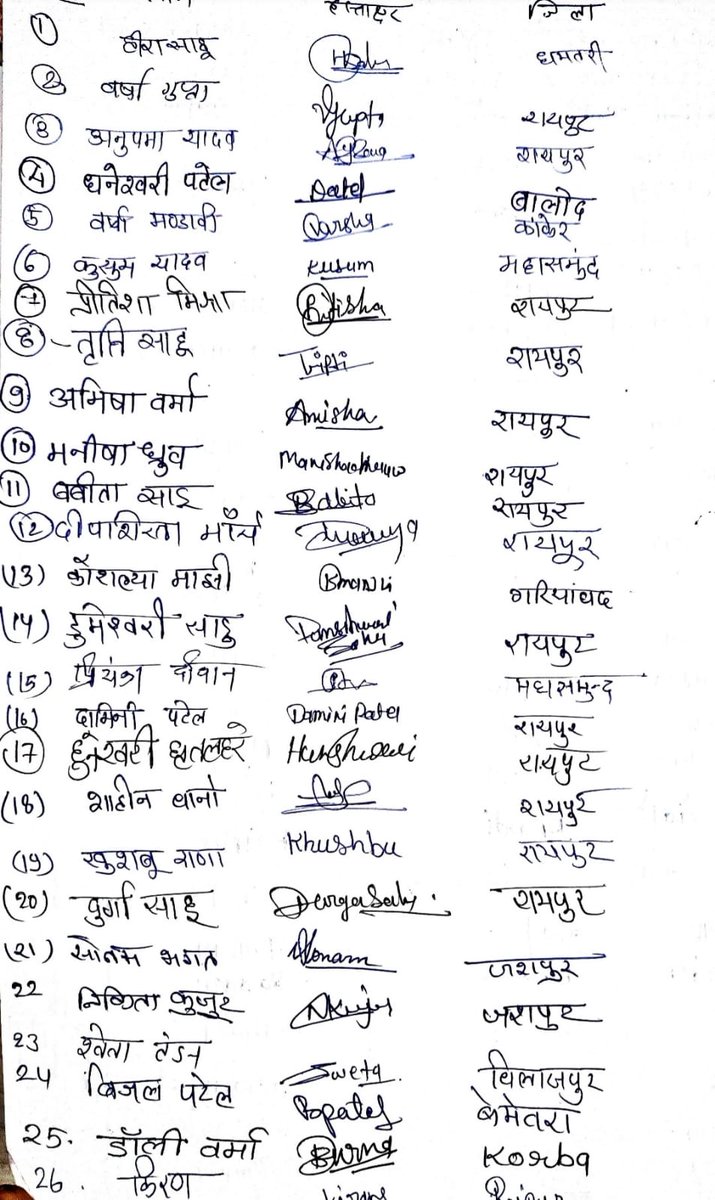 हस्ताक्षर जिला
1 हीरा साहू HSahu धमतरी
2 वर्षा गुप्ता VGupta रायपुर
3 अनुपमा यादव रायपुर
4 धनेश्वरी पटेल Patel बालोद
5 वर्षा मण्डावी Varsha कांकेर
6 कुसुम यादव Kusum महासमुंद
7 प्रीतिशा मिश्रा Pritisha रायपुर
8 - तृप्ति साहू Tripti रायपुर
9 अमिषा वर्मा Amisha रायपुर
10 मनीषा ध्रुव Manisha रायपुर
11 बबीता साहू Babita रायपुर
12 दीपाशिखा मौर्य रायपुर
(13) कौशल्या माझी गरियाबंद
(14) डुमेश्वरी साहू Dameshwari Sahu रायपुर
(15) प्रियंका दीवान महासमुन्द
(16) दामिनी पटेल Damini Patel रायपुर
17 रायपुर
(18) शाहीन बानो रायपुर
(19) खुशबू राणा Khushbu रायपुर
(20) दुर्गा साहू Durga Sahu रायपुर
(21) सोनम भगत Sonam जशपुर
22 निकिता कुजुर NKujur जशपुर
23 श्वेता टंडन Sweta बिलासपुर
24 बिजल पटेल Bpatel बेमेतरा
25. डॉली वर्मा Korba
26. किरण Kiran